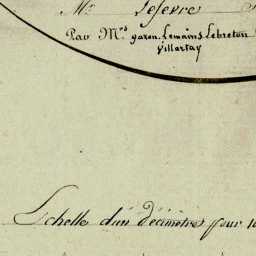 Mr Lefevre
Par Mrs garen. Lemains Lebreton
Villartay
Echelle d'un décimetre pour 10